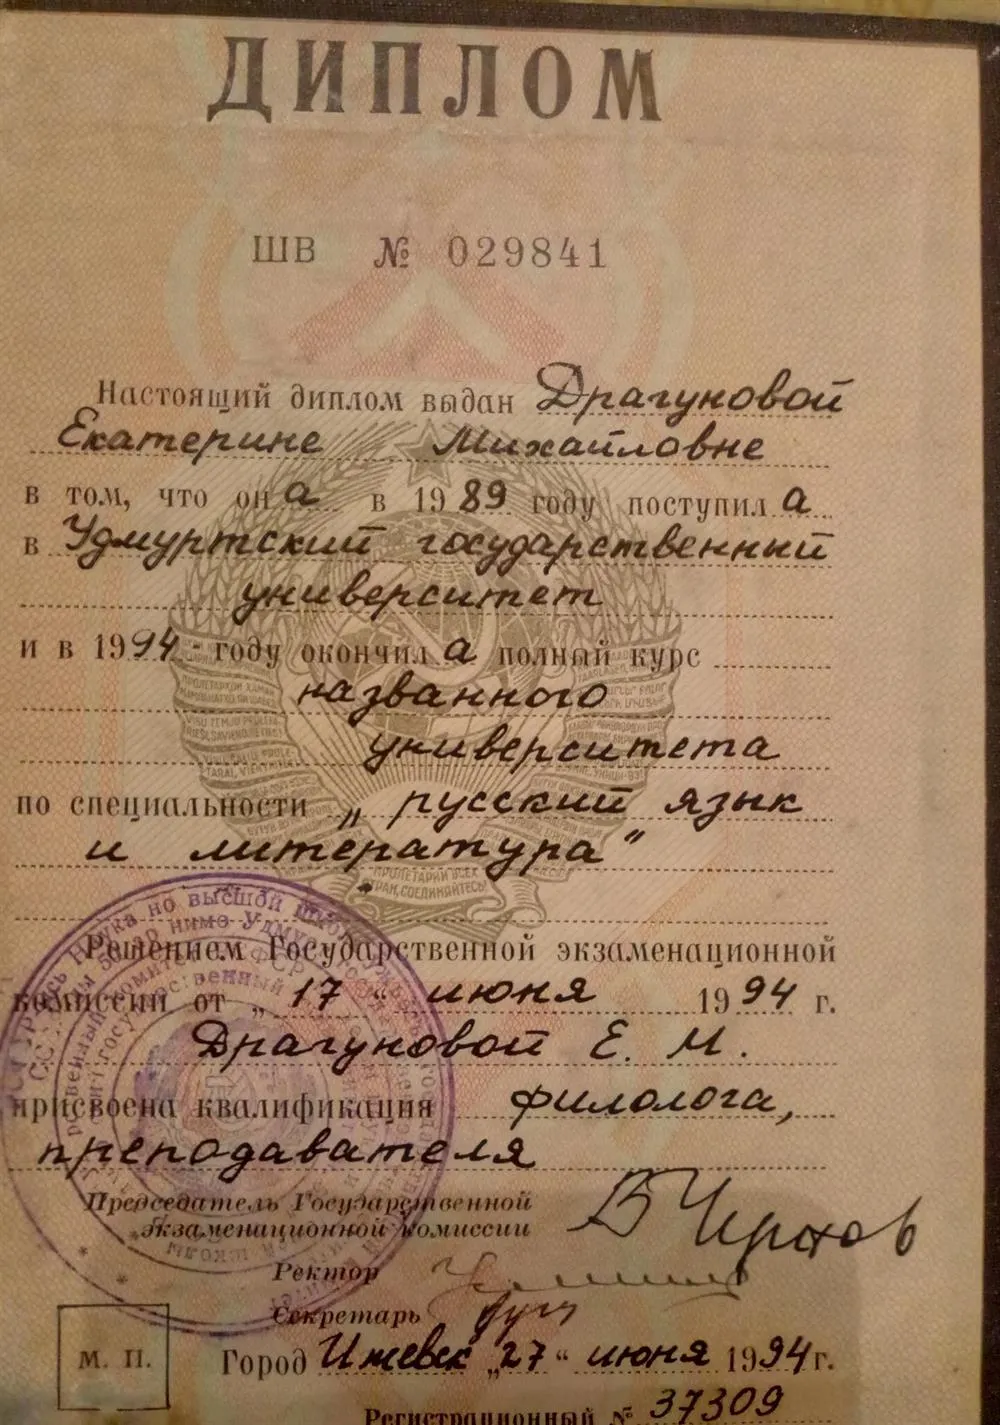 ДИПЛОМ
ШВ № 029841
Настоящий диплом выдан Драгуновой
Екатерине Михайловне
в том, что она в 1989 году поступила
в Удмуртский государственный
университет
и в 1994 году окончила полный курс
названного
университета
по специальности „русский язык
и литература"
Решением Государственной экзаменационной
комиссии от „17" июня 1994 г.
Драгуновой Е. М.
присвоена квалификация филолога,
преподавателя
Председатель Государственной
экзаменационной комиссии
Ректор
Секретарь
М. П.
Город Ижевск „27" июня 1994 г.
Регистрационный № 37309